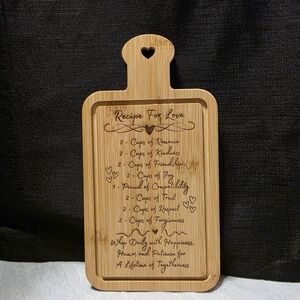 Recipe For Love
2 - Cups of Romance
2 - Cups of Kindness
2 - Cups of Friendship
2 - Cups of Joy
1 - Pound of Compatibility
2 - Cups of Trust
2 - Cups of Respect
2 - Cups of Forgiveness
Whip Daily with Happiness,
Humor, and Patience for
A Lifetime of Togetherness